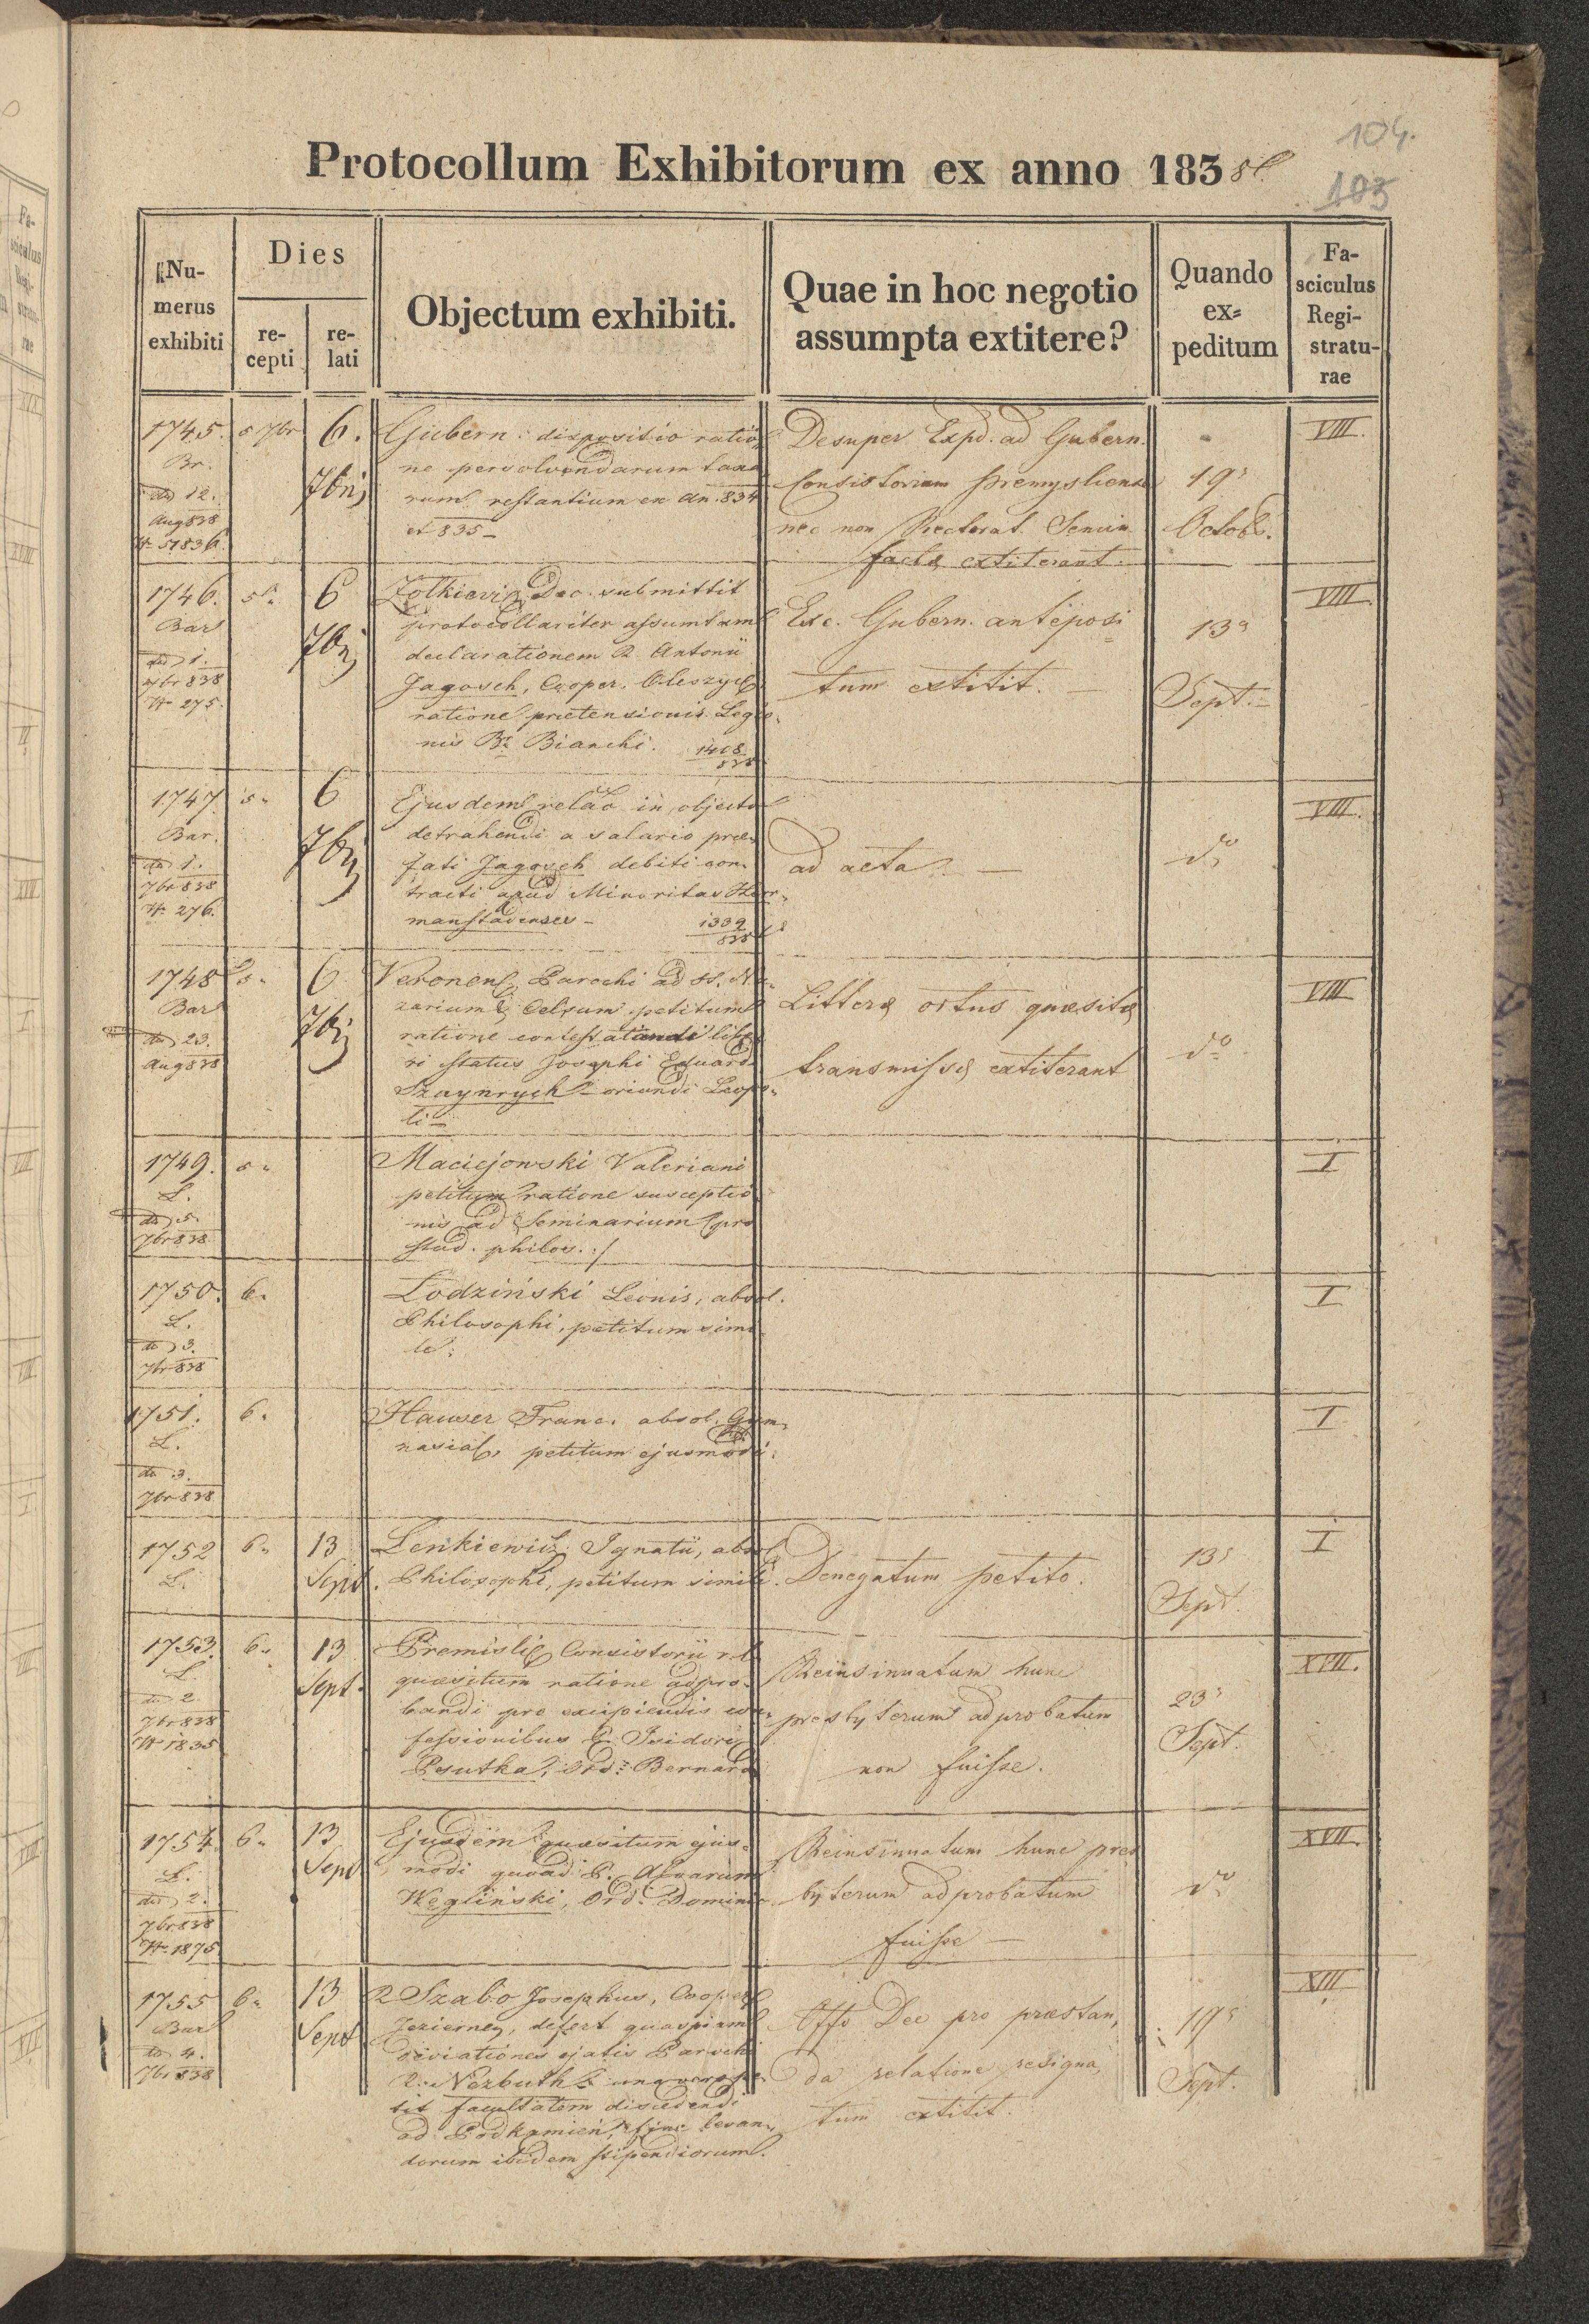 104.
103
Protocollum Exhibitorum ex anno 1838
Numerus exhibiti
Dies
recepti
relati
Objectum exhibiti.
Quae in hoc negotio assumpta extitere?
Quando expeditum
Fasciculus Registraturae
1745.
Br.
dto 12.
Aug 838
N 51836
5 7br
6.
7bris
Gubern: dispositio ratio
ne persolvendarum taxa
rum restantium ex an. 834
et 835 –
Desuper Expd. ad Gubern.
Consistorium Premysliense
nec non Rectorat. Semin.
factæ extiterant.
19a
Octobr.
VIII.
1746.
Bar
dto 1.
7br 838
N 275.
5 "
6
7bris
Zolkievien Dec. submittit
protocollariter assumtam
declarationem R. Antonii
Jagosch, Cooper. Oleszyc
ratione prætensionis Legio-
nis Br. Bianchi. 1408/838
Exc. Gubern. anteposi
tum extitit. –
13a
Sept. –
VIII
1747.
Bar.
dto 1.
7br 838
N. 276.
5 "
6
7bris
Ejusdem relao in objecto
detrahendi a salario præ-
fati Jagosch debiti con-
tracti apud Minoritas Her-
manstadienses – 1339/838
ad acta. –
do
VIII.
1748
Bar
dto 23.
Aug 838
5 "
6
7bris
Veronen, Parochi ad SS. Na-
zarium & Celsum petitum
ratione contestandi libe
ri status Josephi Eduardi
Szaynrych – oriundi Leopo-
li –
Litteræ ortus quæsitæ
transmissæ extiterant
do
VIII
1749.
L.
dto 5.
7br 838
5 "
Maciejowski Valeriani
petitum ratione susceptio
nis ad Seminarium (pro
stud. philos. :/
I
1750.
L.
dto 3.
7br 838
6 "
Łodziński Leonis, absol.
Philosophi, petitum simi
le.
I
1751.
L.
dto 3.
7br 838
6 "
Hauser Franc. absol. Gym-
nasial, petitum ejusmodi.
I
1752
L.
6 "
13
Sept.
Lenkiewicz Ignatii, absol.
Philosophi, petitum simile.
Denegatum petito.
13a
Sept.
I
1753.
L.
dto 2
7br 838
N 1835
6 "
13
Sept.
Premisliæ Consistorii r. l.
quæsitum ratione adpro-
bandi pro excipiendis con-
fessionibus P. Isidori
Pesutka, Ord: Bernard
Reinsinuatum hunc
presbyterum adprobatum
non fuisse.
23a
Sept.
XVII.
1754.
L.
dto 2.
7br 838
N. 1875
6 "
13
Sept
Ejusdem quæsitum ejus-
modi quoad P.
Węgliński, Ord: Domini
Reinsinuatum hunc pres
byterum adprobatum
fuisse –
do
XVII.
1755
Bar
dto 4.
7br 838
6 "
13
Sept
R Szabo Josephus, Cooper
Jezierney, defert quaspiam
deviationes ejatis Parochi
R. Nezbuth &
tit facultatem discedendi
ad Podkamień, fine levan-
dorum ibidem stipendiorum.
Offo Dec pro præstan,
da relatione resigna,
tum extitit.
19a
Sept.
XII